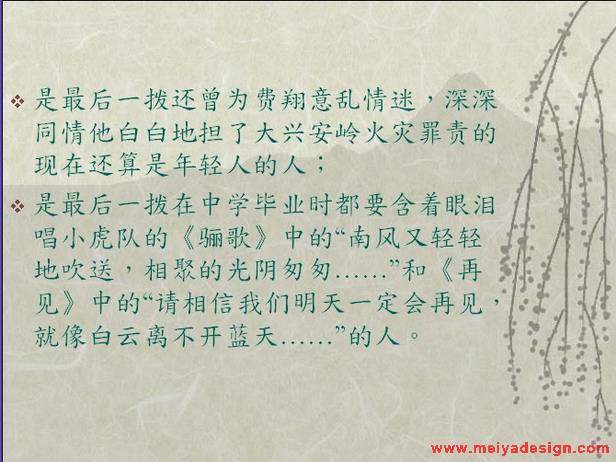 是最后一拨还曾为费翔意乱情迷，深深
同情他白白地担了大兴安岭火灾罪责的
现在还算是年轻人的人；
是最后一拨在中学毕业时都要含着眼泪
唱小虎队的《骊歌》中的“南风又轻轻
地吹送，相聚的光阴匆匆……”和《再
见》中的“请相信我们明天一定会再见，
就像白云离不开蓝天……”的人。
www.meiyadesign.com